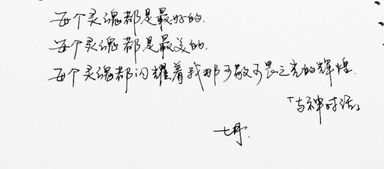 每个灵魂都是最好的.
每个灵魂都是最美的.
每个灵魂都闪耀着我那可敬可畏之光的辉煌.
「与神对话」
七月.